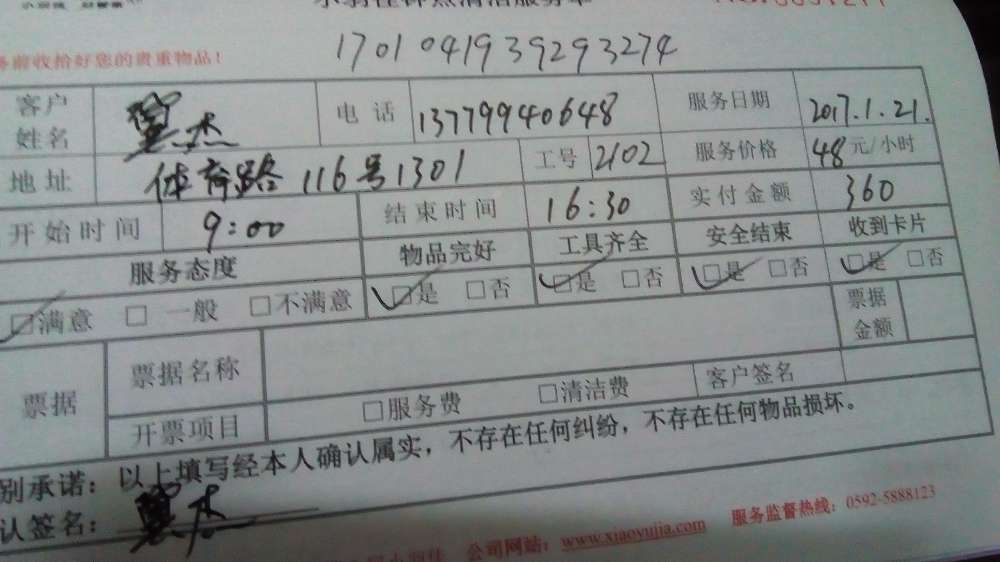 务前收拾好您的贵重物品！
1701041939293274
客户姓名 电话 13779940648 服务日期 2017.1.21.
地址 体育路116号1301 工号 2102 服务价格 48元/小时
开始时间 9:00 结束时间 16:30 实付金额 360
服务态度 物品完好 工具齐全 安全结束 收到卡片
□满意 □一般 □不满意 □是 □否 □是 □否 □是 □否 □是 □否
票据 票据名称 票据金额
开票项目 □服务费 □清洁费 客户签名
别承诺：以上填写经本人确认属实，不存在任何纠纷，不存在任何物品损坏。
认签名：
公司网站：www.xiaoyujia.com 服务监督热线：0592-5888123